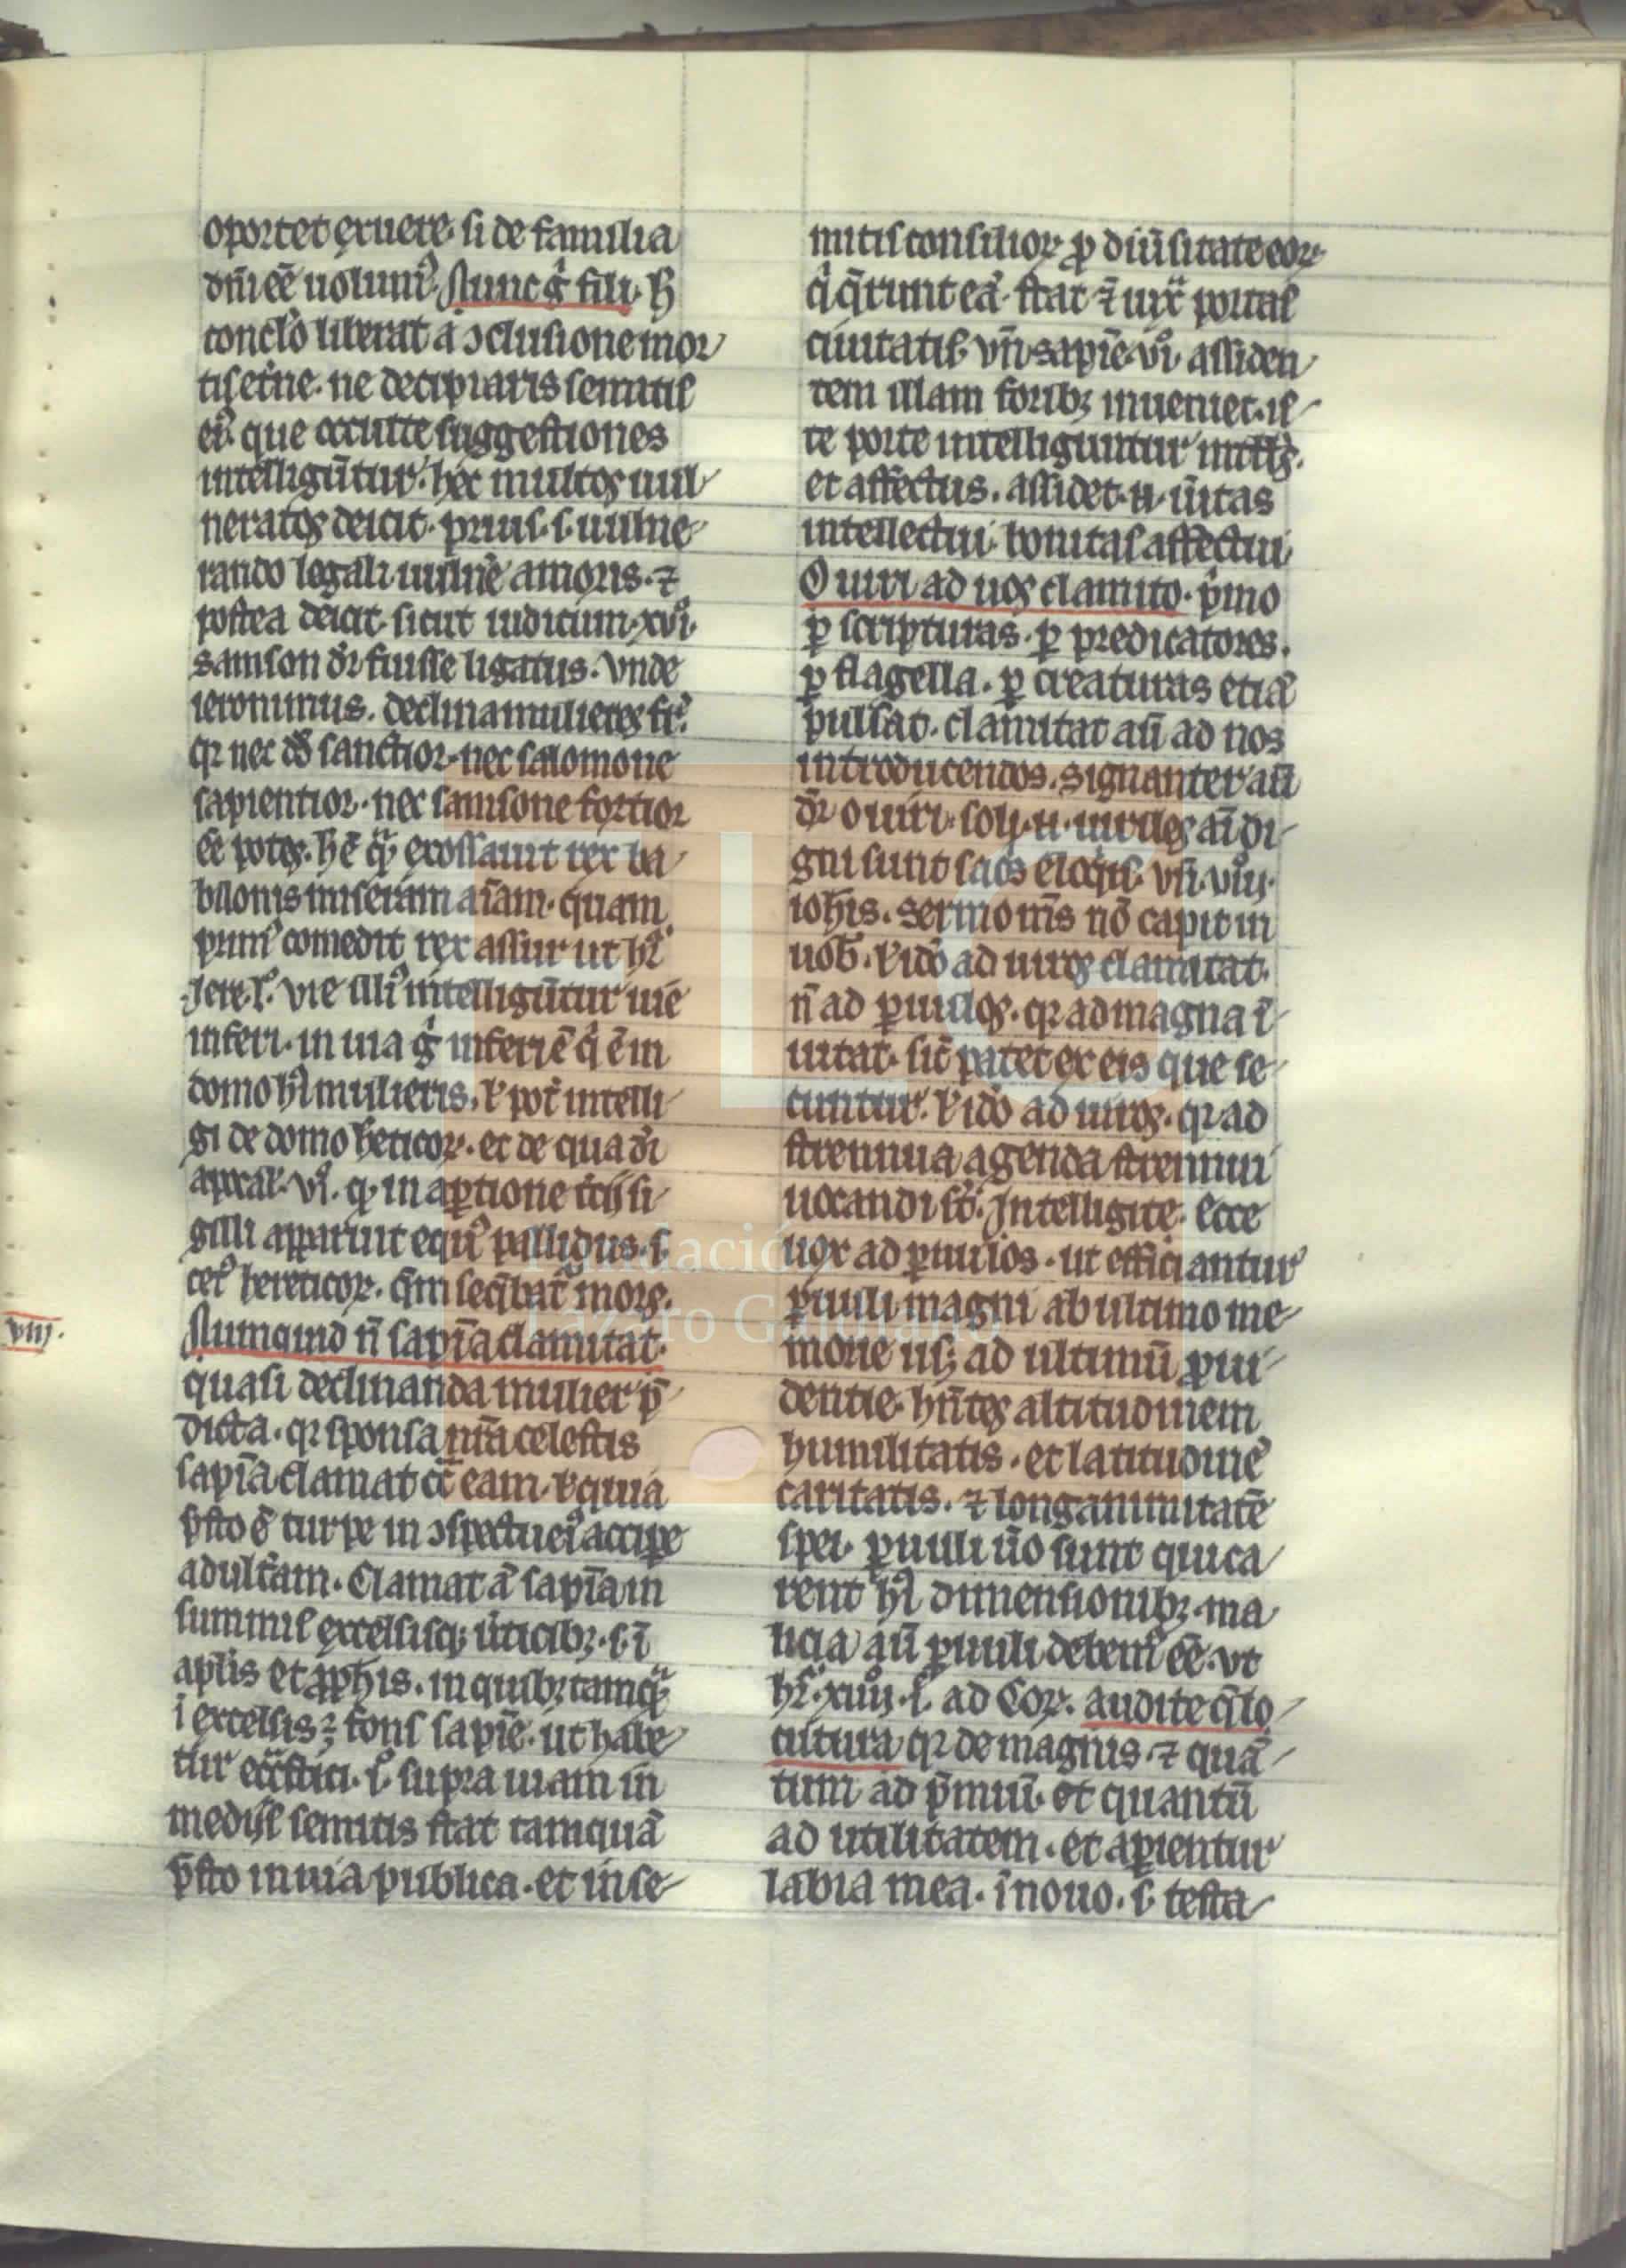 oportet exuere. si de familia
dn̄i eē uolum᷒. Nunc g̊ fili. h̄
conclo̊ liberat a ɔclusione mor
tis et̄ne. ne decipiaris semitis
ei᷒. que occulte suggestiones
intelligūtur. hec multos uul
neratos deicit. prius .s. uulne
rando legali uulnē amoris. ⁊
postea deicit. sicut iudicum. xvi.
samson dr̄ fuisse ligatus. vnde
ieronimus. declina mulieres fr̄.
qꝛ nec dd̄ sanctior. nec salomone
sapientior. nec samsone fortior
eē potes. hec ē q̄ exossauit rex ba
bilonis miseram aīam. quam
prim᷒ comedit rex assur ut hr̄
Jere. l. vie illi᷒ intelligūtur uie
inferi. in uia g̊ inferi ē q̇ ē in
domo hi᷒ mulieris. ł pot̄ intelli
gi de domo heticoꝝ. et de qua dr̄
apocal. vi. ꝙ in aꝑtione iiii si
gilli apparuit equ᷒ pallidus .s.
cet᷒ hereticoꝝ. q̄m seq̄bat᷒ mors.
VIII.
Numquid n̄ sapīa clamitat.
quasi declinanda mulier p̄
dicta. qꝛ sponsa nr̄a celestis
sapīa clamat ɔ̄ eam. ł quia
p̄sto ē turpe in ɔspectu ei᷒ accipe
adult̄am. Clamat aū sapīa in
summis excelsisqꝫ u̇ticibꝫ .s. ī
apl̄is et ꝓph̄is. in quibꝫ tamq̄
ī excelsis ē fons sapīe. ut habe
tur ecc̄stici. i. supra uiam in
mediis semitis stat tamquā
p̄sto in uia publica. et in se
mitis consilioꝝ ꝓ diūsitate eoꝝ
q̇ q̄runt eā. stat ⁊ iuxͣ portas
ciuitatis. vn̄ sapīe. vi. assiden
tem illam foribꝫ inueniet. is
te porte intelliguntur intellc̄s.
et affectus. assidet .n. ūitas
intellectui. bonitas affectui.
O uiri ad uos clamito. p̄mo
ꝑ scripturas. ꝑ predicatores.
ꝑ flagella. ꝑ creaturas etiā
pulsat. clamitat aū ad nos
introducendos. signanter aū
dr̄ o uiri. soli .n. uiriles aī di
gni sunt sac̄s eloq̇is. vn̄. viii.
ioh̄is. sermo m̄s nō capit in
uob̄. ł ido̊ ad uiros clamitat.
n̄ ad ꝑuulos. qꝛ ad magna ī
uitat. sic̄ patet ex eis que se
cuntur. ł ido̊ ad uiros. qꝛ ad
strennua agenda strennui
uocandi st̄. Intelligite. Ecce
uox ad ꝑuulos. ut efficiantur
ꝑuuli magni ab ultimo me
morie usqꝫ ad ultimū ꝓui
dentie. hn̄tes altitudinem
humilitatis. et latitudinē
caritatis. ⁊ longanimitatē
spei. ꝑuuli ūo sunt qui ca
rent hi᷒ dimensionibꝫ. ma
licia aū ꝑuuli debem᷒ eē. vt
hr̄. xiiii. i. ad Coꝝ. audite q̄ lo
cutura qꝛ de magnis. ⁊ quā
tum ad p̄miū. et quantū
ad utilitatem. et aꝑientur
labia mea. ī nouo .s. testa